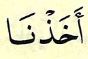 أَخَذْنَا